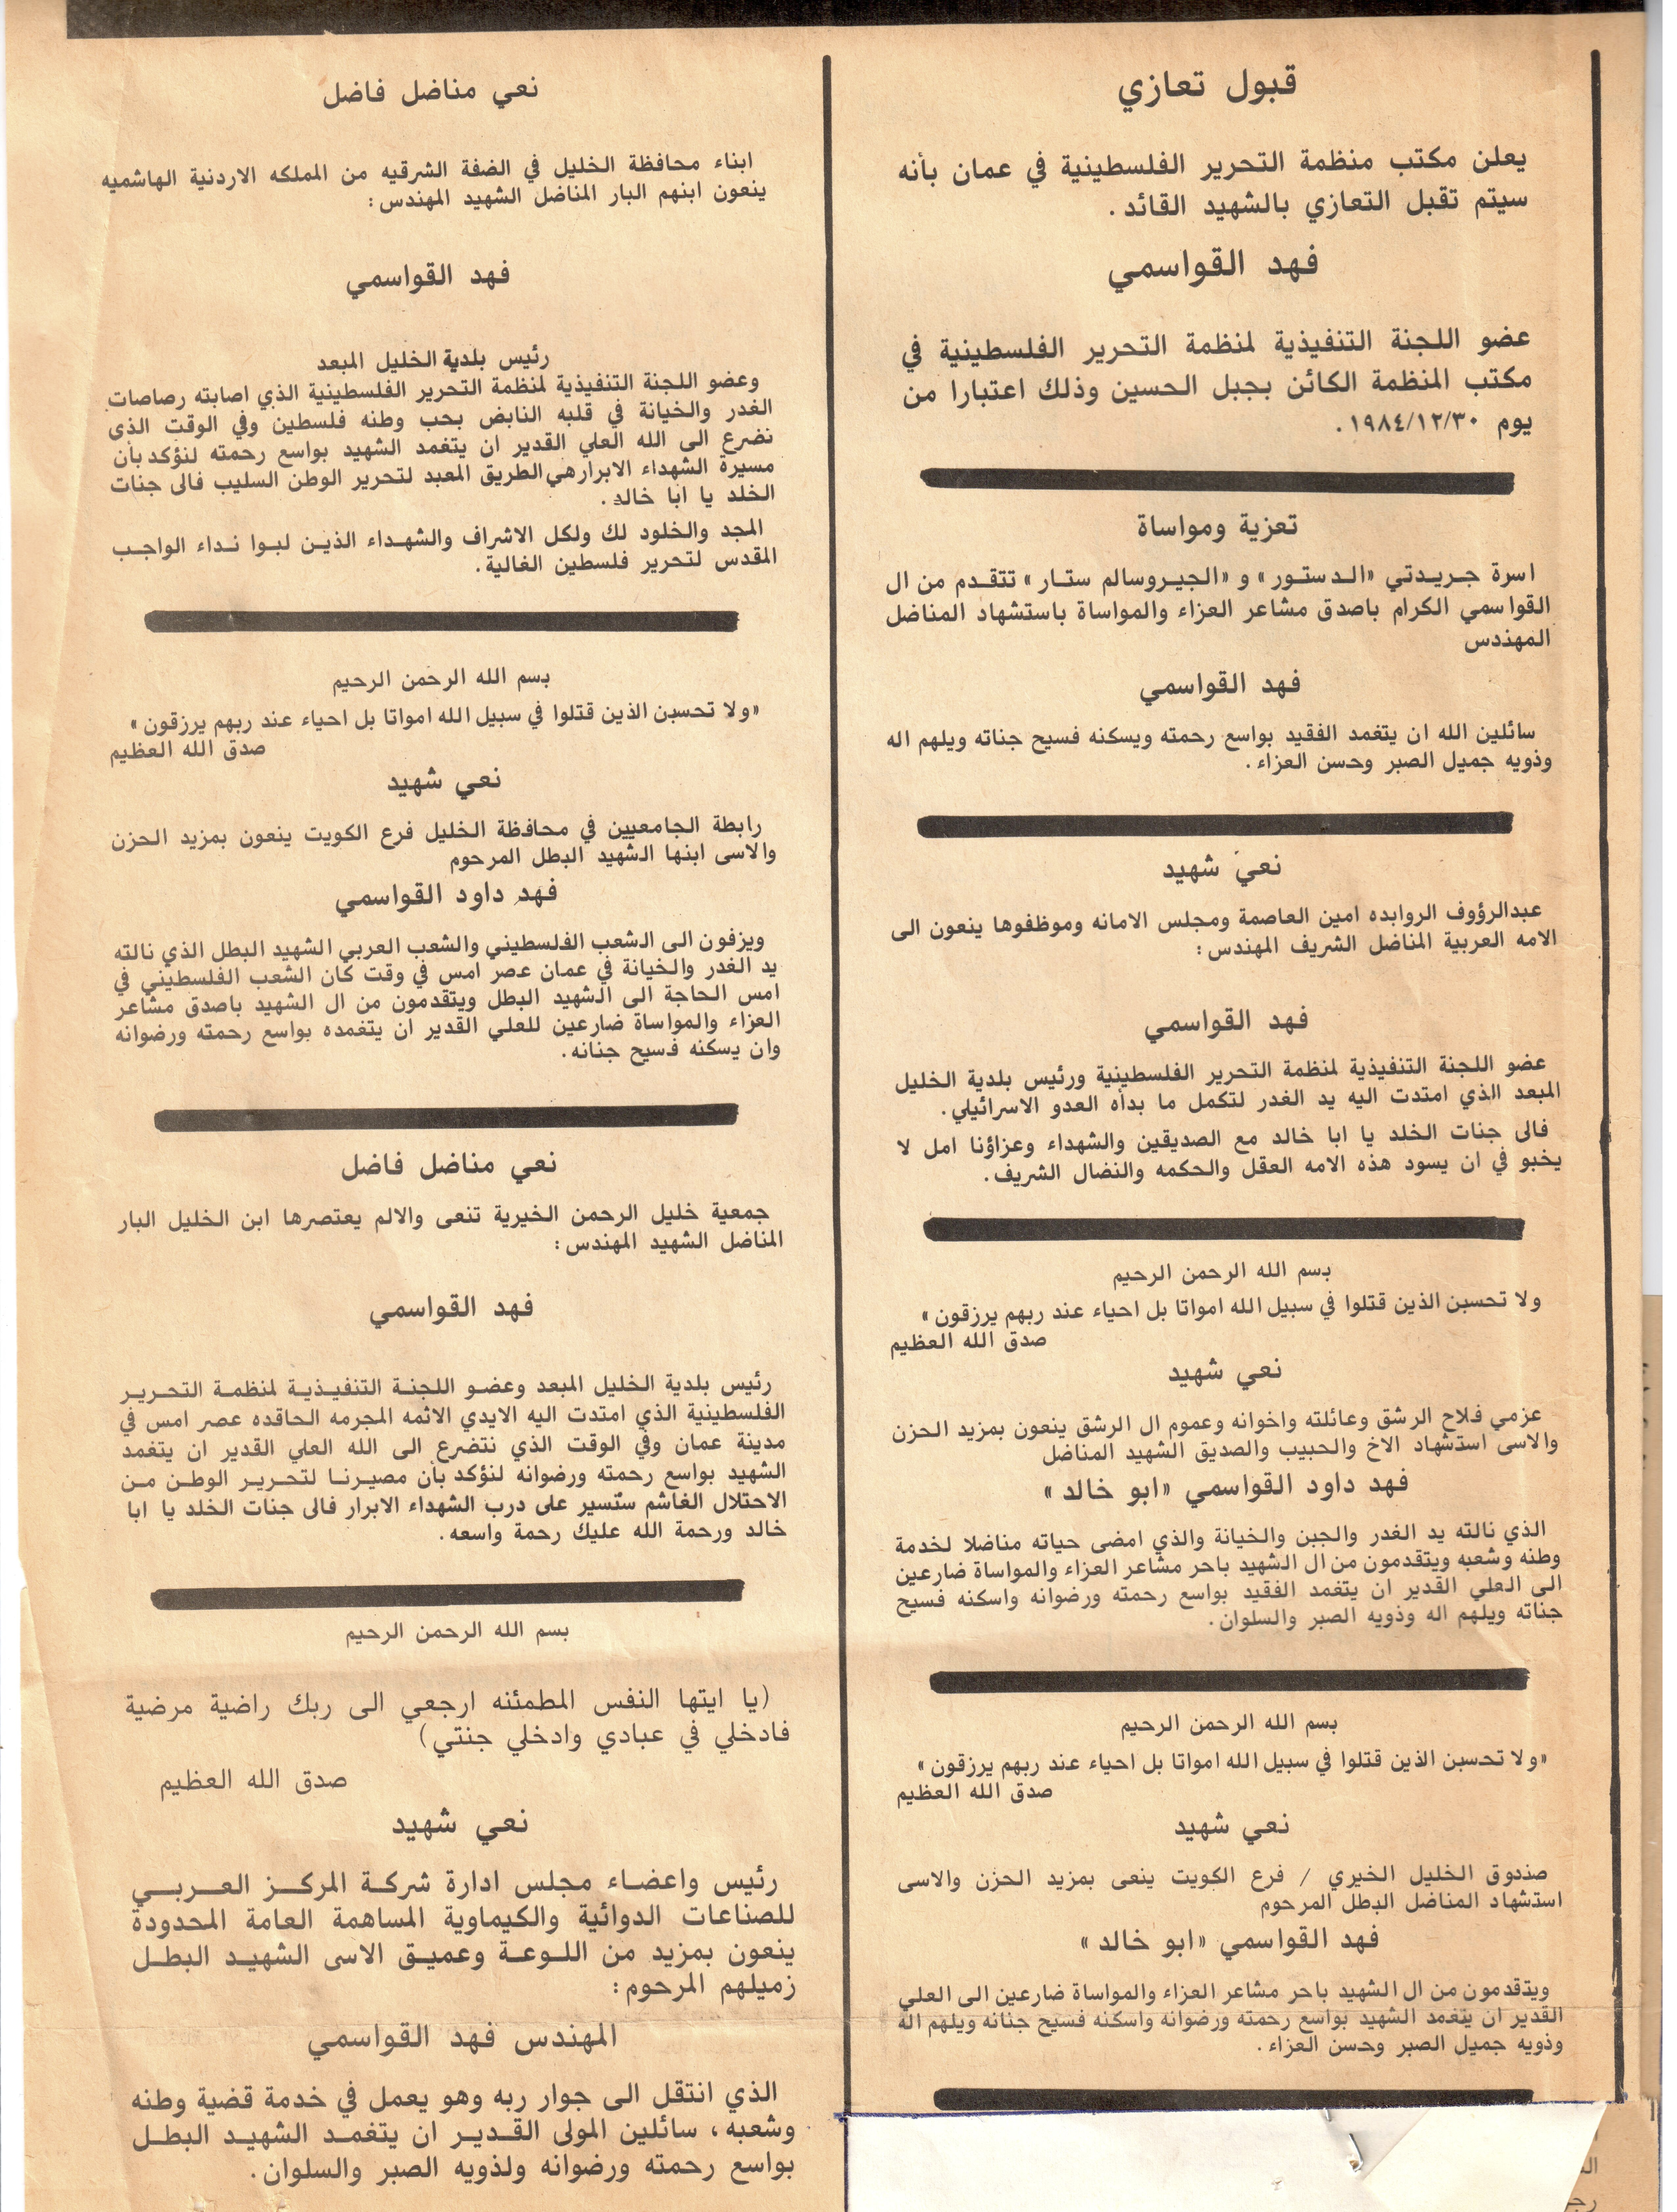 قبول تعازي
يعلن مكتب منظمة التحرير الفلسطينية في عمان بأنه
سيتم تقبل التعازي بالشهيد القائد .
فهد القواسمي
عضو اللجنة التنفيذية لمنظمة التحرير الفلسطينية في
مكتب المنظمة الكائن بجبل الحسين وذلك اعتبارا من
يوم ١٩٨٤/١٢/٣٠ .
تعزية ومواساة
اسرة جريدتي «الدستور» و «الجيروسالم ستار» تتقدم من ال
القواسمي الكرام باصدق مشاعر العزاء والمواساة باستشهاد المناضل
المهندس
فهد القواسمي
سائلين الله ان يتغمد الفقيد بواسع رحمته ويسكنه فسيح جناته ويلهم اله
وذويه جميل الصبر وحسن العزاء .
نعي شهيد
عبدالرؤوف الروابده امين العاصمة ومجلس الامانه وموظفوها ينعون الى
الامه العربية المناضل الشريف المهندس :
فهد القواسمي
عضو اللجنة التنفيذية لمنظمة التحرير الفلسطينية ورئيس بلدية الخليل
المبعد الذي امتدت اليه يد الغدر لتكمل ما بدأه العدو الاسرائيلي .
فالى جنات الخلد يا ابا خالد مع الصديقين والشهداء وعزاؤنا امل لا
يخبو في ان يسود هذه الامه العقل والحكمه والنضال الشريف .
بسم الله الرحمن الرحيم
ولا تحسبن الذين قتلوا في سبيل الله امواتا بل احياء عند ربهم يرزقون»
صدق الله العظيم
نعي شهيد
عزمي فلاح الرشق وعائلته واخوانه وعموم ال الرشق ينعون بمزيد الحزن
والاسى استشهاد الاخ والحبيب والصديق الشهيد المناضل
فهد داود القواسمي «ابو خالد»
الذي نالته يد الغدر والجبن والخيانة والذي امضى حياته مناضلا لخدمة
وطنه وشعبه ويتقدمون من ال الشهيد باحر مشاعر العزاء والمواساة ضارعين
الى العلي القدير ان يتغمد الفقيد بواسع رحمته ورضوانه واسكنه فسيح
جناته ويلهم اله وذويه الصبر والسلوان .
بسم الله الرحمن الرحيم
«ولا تحسبن الذين قتلوا في سبيل الله امواتا بل احياء عند ربهم يرزقون»
صدق الله العظيم
نعي شهيد
صندوق الخليل الخيري / فرع الكويت ينعى بمزيد الحزن والاسى
استشهاد المناضل البطل المرحوم
فهد القواسمي «ابو خالد»
ويتقدمون من ال الشهيد باحر مشاعر العزاء والمواساة ضارعين الى العلي
القدير ان يتغمد الشهيد بواسع رحمته ورضوانه واسكنه فسيح جنانه ويلهم اله
وذويه جميل الصبر وحسن العزاء .
نعي مناضل فاضل
ابناء محافظة الخليل في الضفة الشرقيه من المملكه الاردنية الهاشميه
ينعون ابنهم البار المناضل الشهيد المهندس :
فهد القواسمي
رئيس بلدية الخليل المبعد
وعضو اللجنة التنفيذية لمنظمة التحرير الفلسطينية الذي اصابته رصاصات
الغدر والخيانة في قلبه النابض بحب وطنه فلسطين وفي الوقت الذي
نضرع الى الله العلي القدير ان يتغمد الشهيد بواسع رحمته لنؤكد بأن
مسيرة الشهداء الابرار هي الطريق المعبد لتحرير الوطن السليب فالى جنات
الخلد يا ابا خالد .
المجد والخلود لك ولكل الاشراف والشهداء الذين لبوا نداء الواجب
المقدس لتحرير فلسطين الغالية .
بسم الله الرحمن الرحيم
«ولا تحسبن الذين قتلوا في سبيل الله امواتا بل احياء عند ربهم يرزقون»
صدق الله العظيم
نعي شهيد
رابطة الجامعيين في محافظة الخليل فرع الكويت ينعون بمزيد الحزن
والاسى ابنها الشهيد البطل المرحوم
فهد داود القواسمي
ويزفون الى الشعب الفلسطيني والشعب العربي الشهيد البطل الذي نالته
يد الغدر والخيانة في عمان عصر امس في وقت كان الشعب الفلسطيني في
امس الحاجة الى الشهيد البطل ويتقدمون من ال الشهيد باصدق مشاعر
العزاء والمواساة ضارعين للعلي القدير ان يتغمده بواسع رحمته ورضوانه
وان يسكنه فسيح جنانه .
نعي مناضل فاضل
جمعية خليل الرحمن الخيرية تنعى والالم يعتصرها ابن الخليل البار
المناضل الشهيد المهندس :
فهد القواسمي
رئيس بلدية الخليل المبعد وعضو اللجنة التنفيذية لمنظمة التحرير
الفلسطينية الذي امتدت اليه الايدي الاثمه المجرمه الحاقده عصر امس في
مدينة عمان وفي الوقت الذي نتضرع الى الله العلي القدير ان يتغمد
الشهيد بواسع رحمته ورضوانه لنؤكد بأن مصيرنا لتحرير الوطن من
الاحتلال الغاشم ستسير على درب الشهداء الابرار فالى جنات الخلد يا ابا
خالد ورحمة الله عليك رحمة واسعه .
بسم الله الرحمن الرحيم
(يا ايتها النفس المطمئنه ارجعي الى ربك راضية مرضية
فادخلي في عبادي وادخلي جنتي)
صدق الله العظيم
نعي شهيد
رئيس واعضاء مجلس ادارة شركة المركز العربي
للصناعات الدوائية والكيماوية المساهمة العامة المحدودة
ينعون بمزيد من اللوعة وعميق الاسى الشهيد البطل
زميلهم المرحوم :
المهندس فهد القواسمي
الذي انتقل الى جوار ربه وهو يعمل في خدمة قضية وطنه
وشعبه ، سائلين المولى القدير ان يتغمد الشهيد البطل
بواسع رحمته ورضوانه ولذويه الصبر والسلوان .